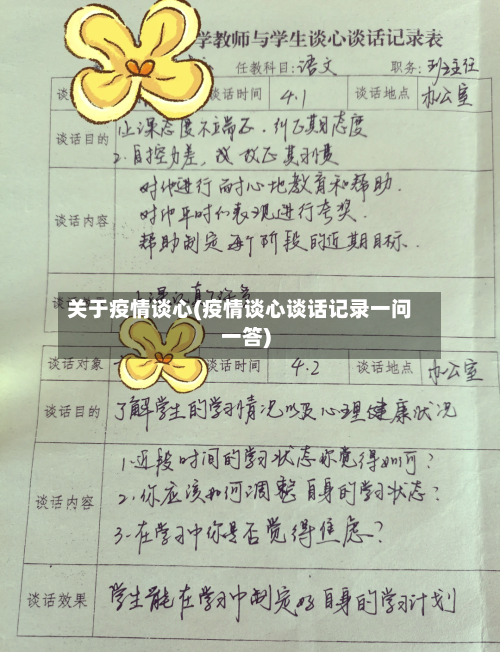 学教师与学生谈心谈话记录表
任教科目:语文 职务:班主任
谈 谈话时间 4.1 谈话地点 办公室
谈话目的 1.上课态度不端正,纠正其态度
2.自控力差,改正其习惯
谈话内容 对他进行耐心地教育和帮助.
对他平时的表现进行夸奖.
帮助制定每个阶段的近期目标.
关于疫情谈心(疫情谈心谈话记录一问一答)
谈话对象 谈话时间 4.2 谈话地点 办公室
谈话目的 了解学生的学习情况以及心理健康状况
谈话内容 1.近段时间的学习状态你觉得如何?
2.你应该如何调整自身的学习状态?
3.在学习中你是否觉得焦虑?
谈话效果 学生能在学习中制定好自身的学习计划